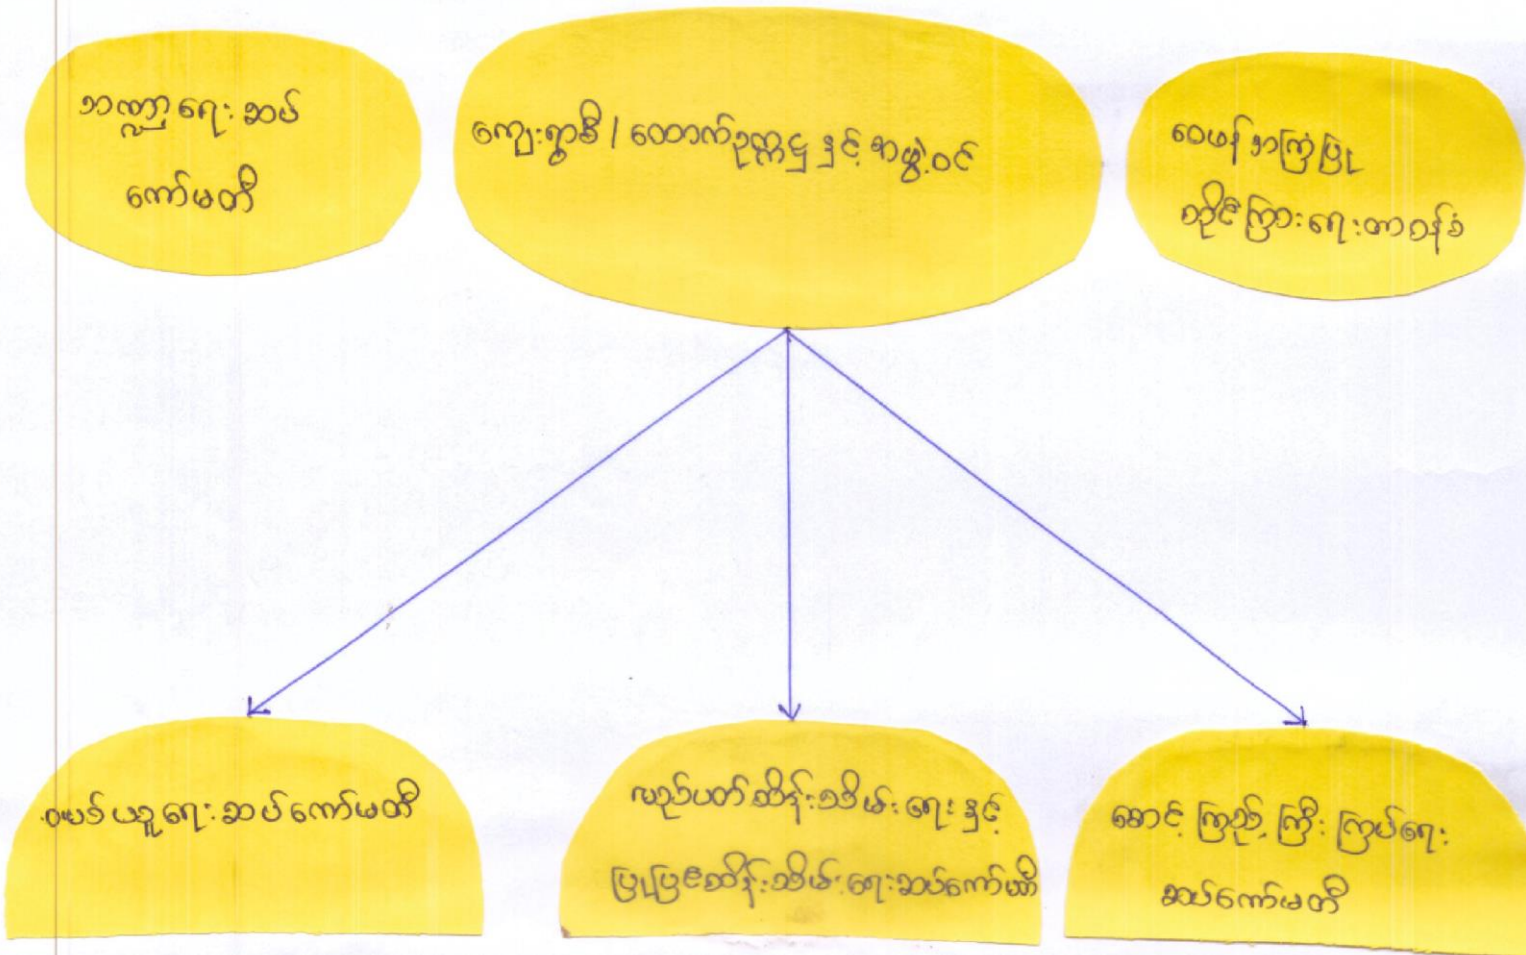 ဘဏ္ဍာရေးဆပ်
ကော်မတီ
ကျေးရွာစီ / ထောက်ဥက္ကဋ္ဌ နှင့် အဖွဲ့ဝင်
ဝေဖန်အကြံပြု
တိုင်ကြားရေးတာဝန်ခံ
ဝယ်ယူရေးဆပ်ကော်မတီ
လည်ပတ်ထိန်းသိမ်းရေးနှင့်
ပြုပြင်ထိန်းသိမ်းရေးဆပ်ကော်မတီ
စောင့်ကြည့်ကြီးကြပ်ရေး
ဆပ်ကော်မတီ